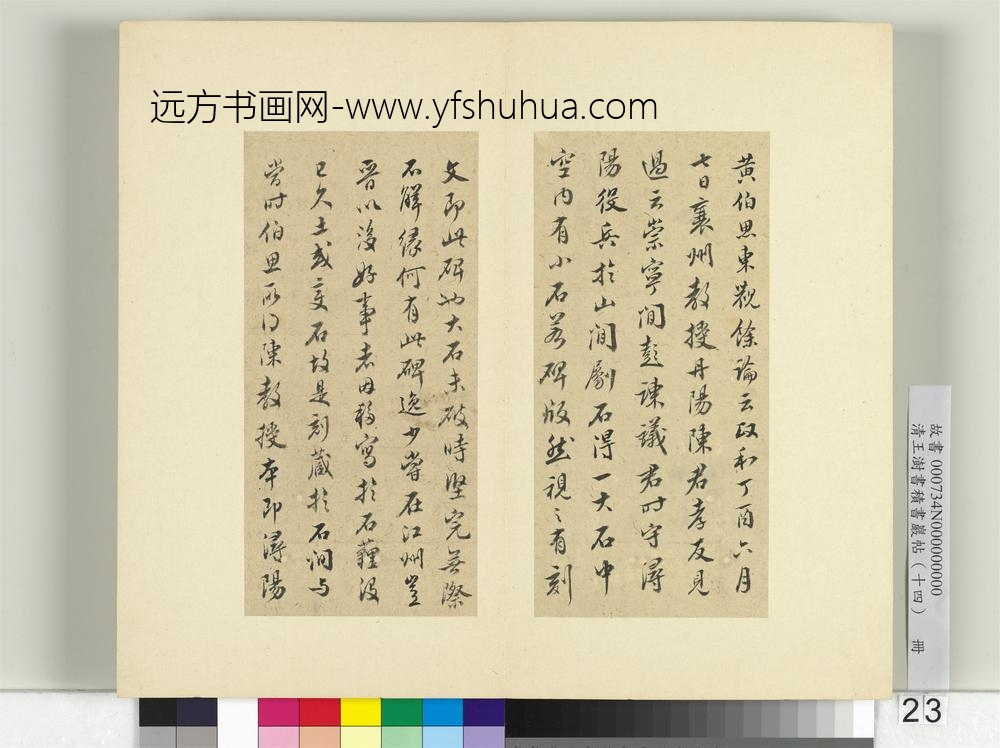 远方书画网-www.yfshuhua.com
黃伯思東觀餘論云政和丁酉六月
七日襄州教授丹陽陳君孝友見
過云崇寧間彭諫議君時守潯
陽役兵於山間劚石得一大石中
空内有小石若碑版然視之有刻
文即此碑也大石未破時堅完無際
不解緣何有此碑逸少嘗在江州豈
晉以後好事者因移寫於石薶沒
已久土或變石故是刻藏於石澗与
當時伯思所得陳教授本即潯陽
故書000734N000000000
清王澍書積書巖帖（十四） 冊
23